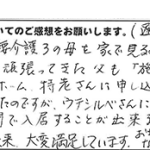 いてのご感想をお願いします。(
要介護3の母を家で見る
頑張ってきた父も「施
ホーム、特老さんに申し込
たのですが、ウテシルべさんに
間で入居することが出来
来、大変満足しています。